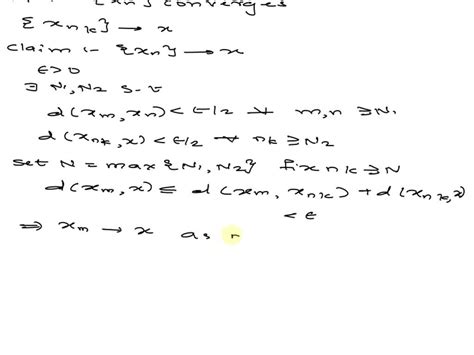 {xn} converges
{xnk} → x
claim :- {xn} → x
ε>0
∃ N1, N2 s-t
d(xm, xn) < ε/2 ∀ m,n ≥ N1
d(xnk, x) < ε/2 ∀ nk ≥ N2
set N = max {N1, N2} fix nk ≥ N
d(xm, x) ≤ d(xm, xnk) + d(xnk, x)
< ε
⇒ xm → x as